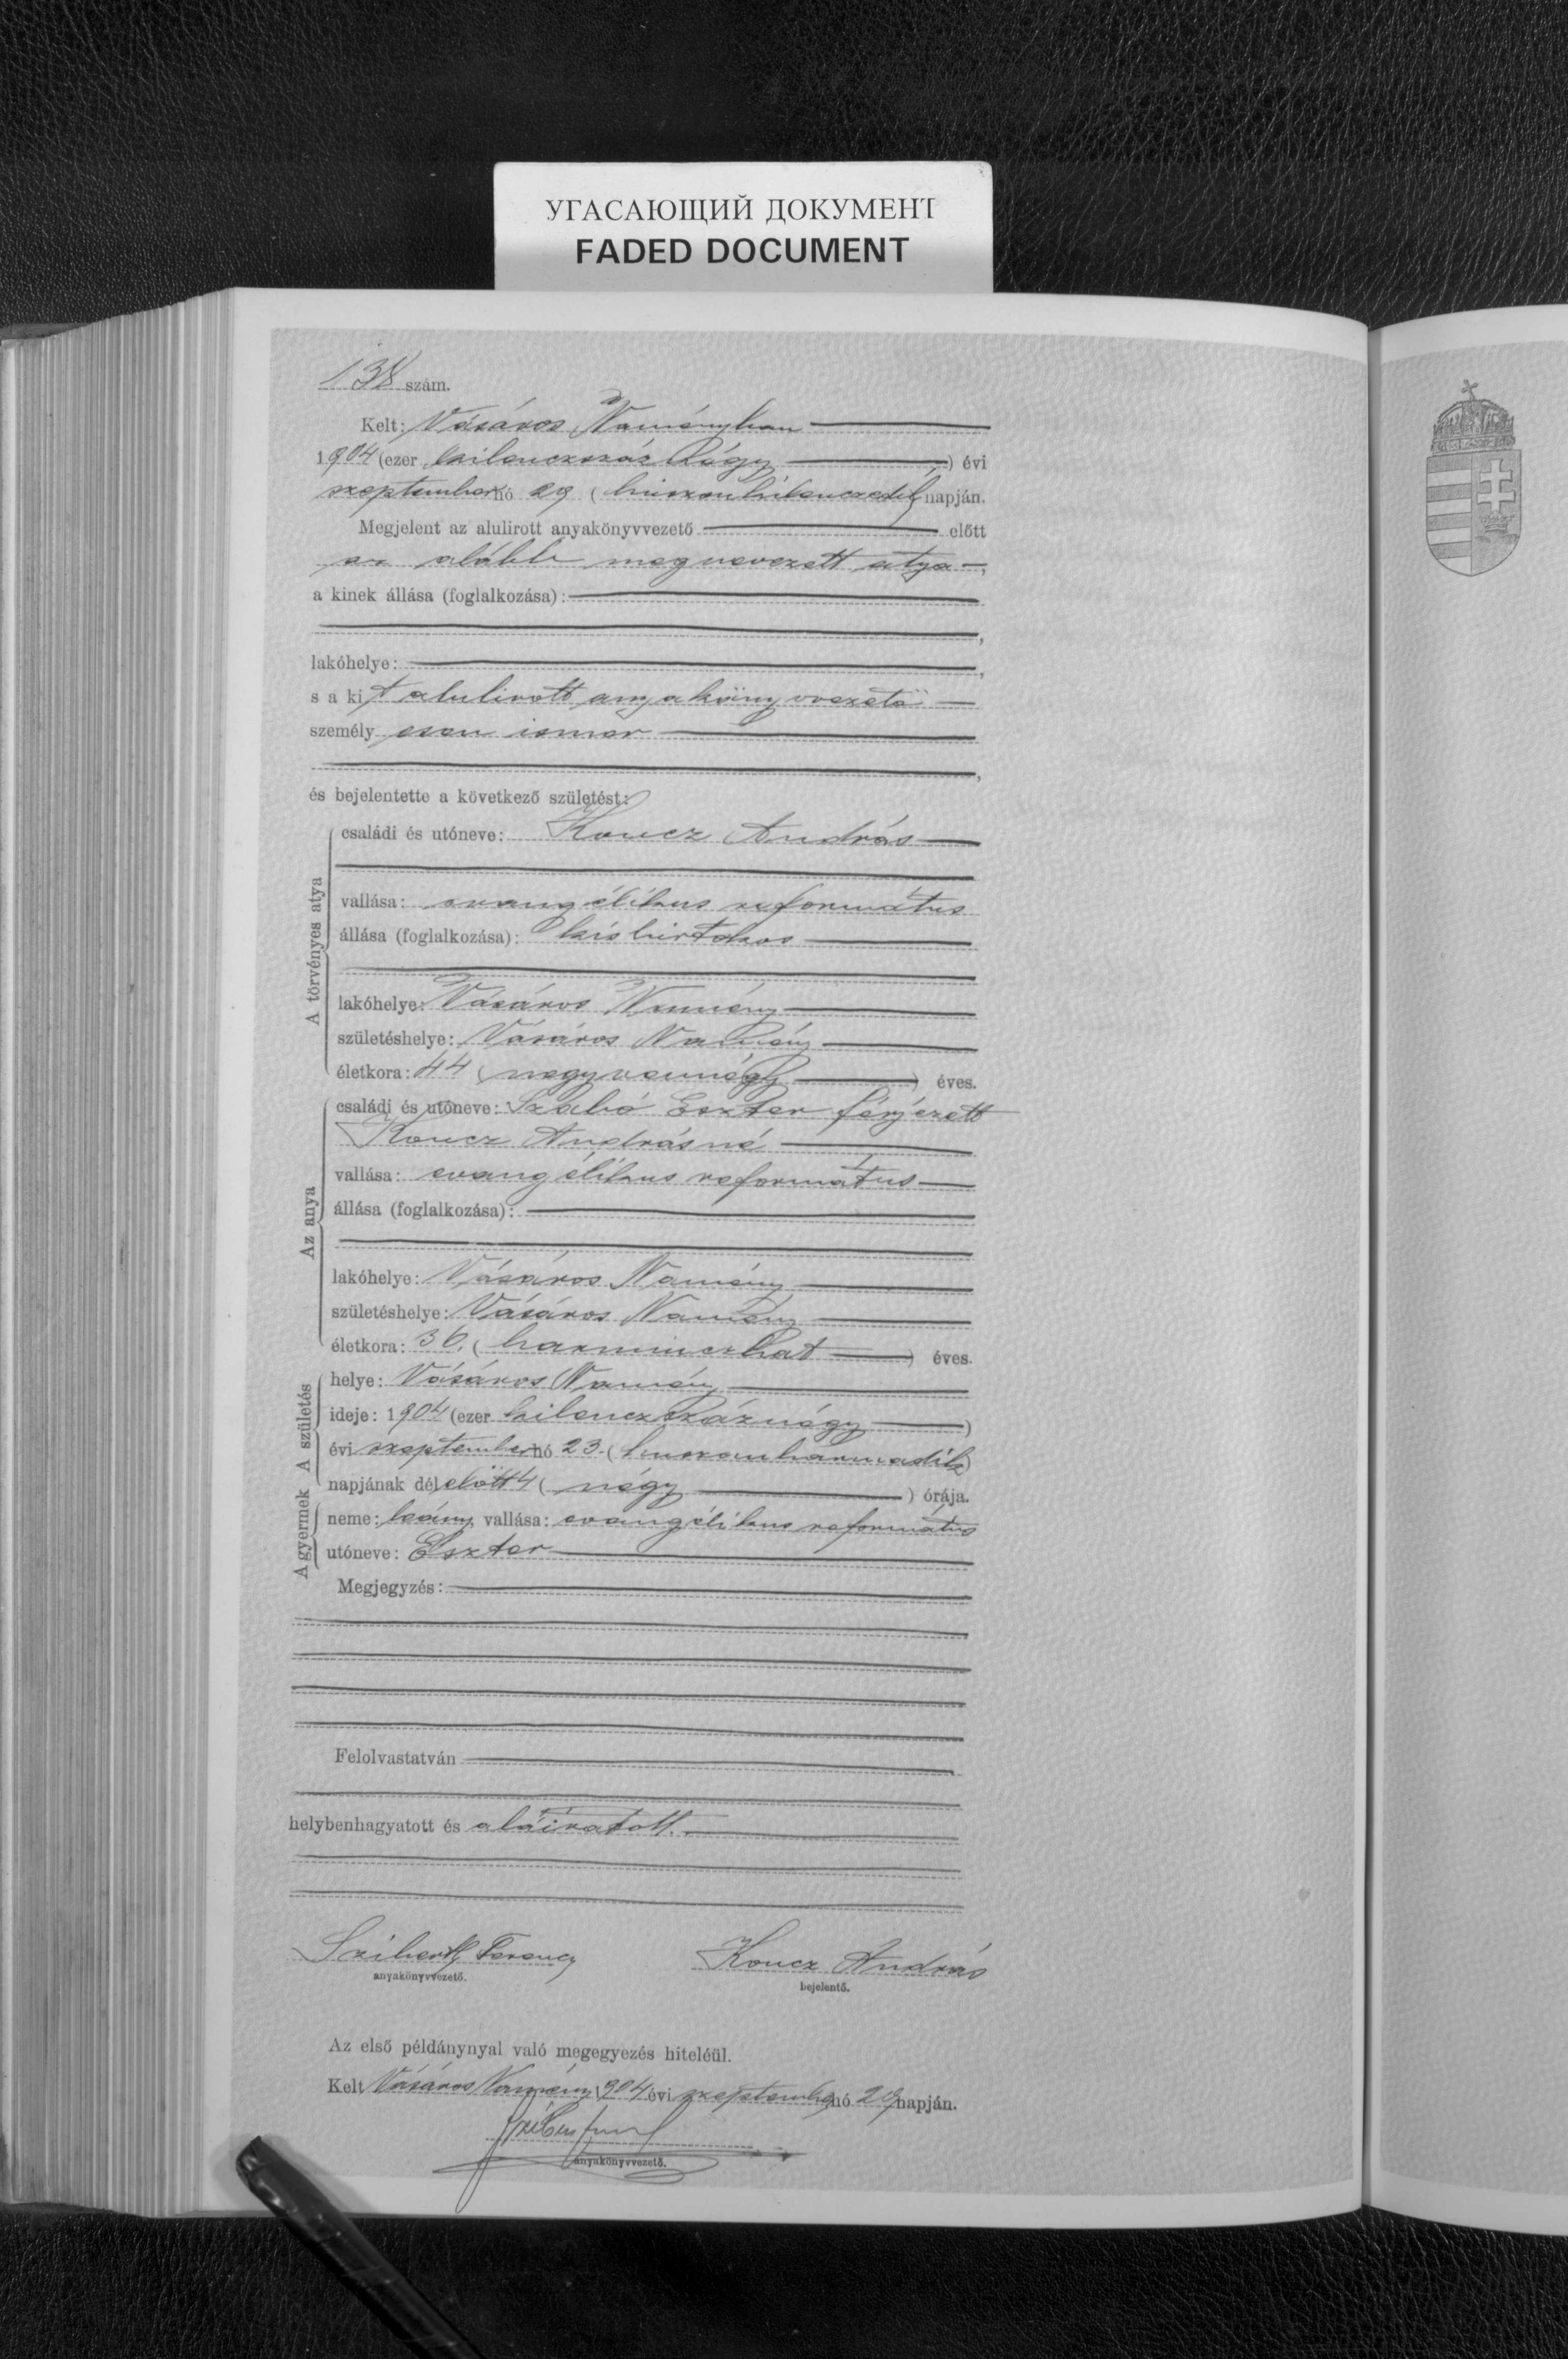 УГАСАЮЩИЙ ДОКУМЕНТ
FADED DOCUMENT
138 szám.
Kelt: Vásáros Naményban
1904 (ezer kilenczszáz négy) évi
szeptember hó 29 (huszonkilenczedik) napján.
Megjelent az alulirott anyakönyvvezető előtt
az alább megnevezett atya,
a kinek állása (foglalkozása):
lakóhelye:
s a kit alulirott anyakönyvvezető
személyesen ismer
és bejelentette a következő születést:
A törvényes atya
családi és utóneve: Koncz András
vallása: evangélikus református
állása (foglalkozása): kisbirtokos
lakóhelye: Vásáros Namény
születéshelye: Vásáros Namény
életkora: 44 (negyvennégy) éves.
Az anya
családi és utóneve: Szabó Eszter férjezett
Koncz Andrásné
vallása: evangélikus református
állása (foglalkozása):
lakóhelye: Vásáros Namény
születéshelye: Vásáros Namény
életkora: 36. (harminczhat) éves.
A születés
helye: Vásáros Namény
ideje: 1904 (ezer kilenczszáznégy)
évi szeptember hó 23. (huszonharmadik)
napjának délelőtt 4 (négy) órája.
A gyermek
neme: leány, vallása: evangélikus református
utóneve: Eszter
Megjegyzés:
Felolvastatván
helybenhagyatott és aláiratott.
Ferencz Koncz András
anyakönyvvezető. bejelentő.
Az első példánynyal való megegyezés hiteléül.
Kelt Vásáros Namény 1904 évi szeptember hó 29 napján.
anyakönyvvezető.